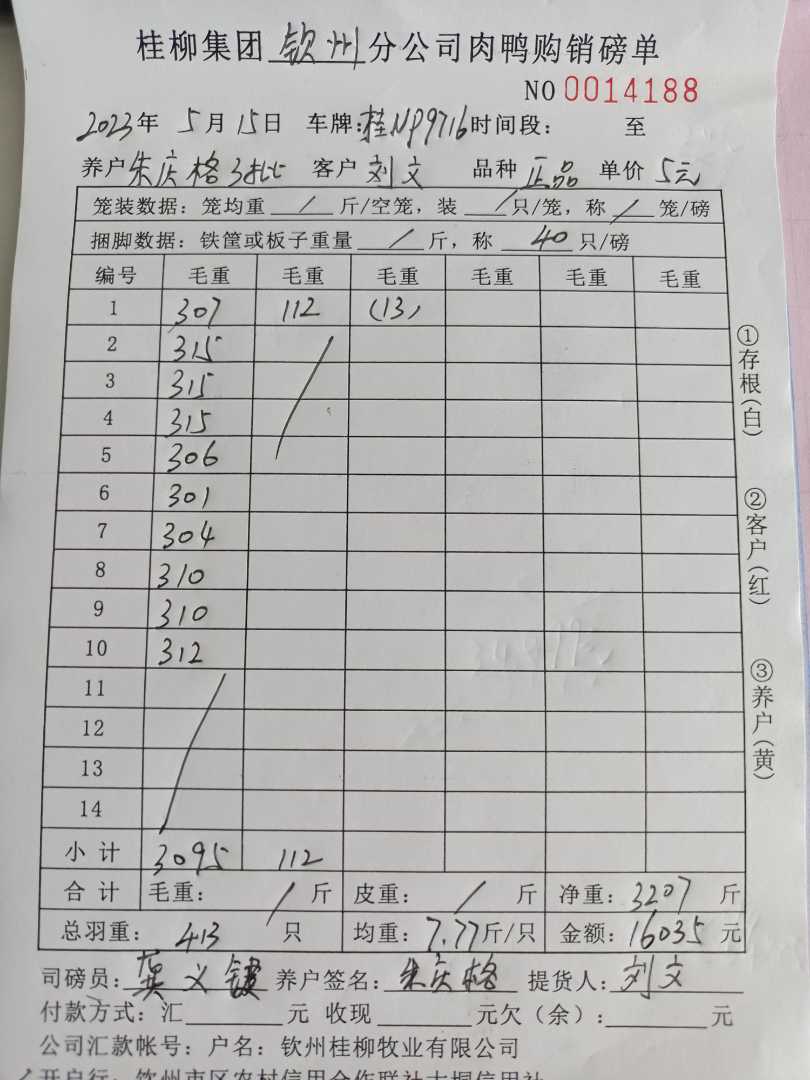 桂柳集团 钦州 分公司肉鸭购销磅单
NO 0014188
2023年 5月15日 车牌:桂NP9716 时间段: 至
养户 朱庆格3批 客户 刘文 品种 正品 单价 5元
笼装数据: 笼均重 / 斤/空笼, 装 / 只/笼, 称 / 笼/磅
捆脚数据: 铁筐或板子重量 / 斤, 称 40 只/磅
编号 毛重 毛重 毛重 毛重 毛重 毛重
1 307 112 (13)
2 315
3 315
4 315
5 306
6 301
7 304
8 310
9 310
10 312
11
12
13
14
小计 3095 112
合计 毛重: / 斤 皮重: / 斤 净重: 3207 斤
总羽重: 413 只 均重: 7.77斤/只 金额: 16035 元
司磅员: 义 养户签名: 朱庆格 提货人: 刘文
付款方式: 汇 元 收现 元欠(余): 元
公司汇款帐号: 户名: 钦州桂柳牧业有限公司
开户行: 钦州市区农村信用合作联社大垌信用社
①存根(白)
②客户(红)
③养户(黄)